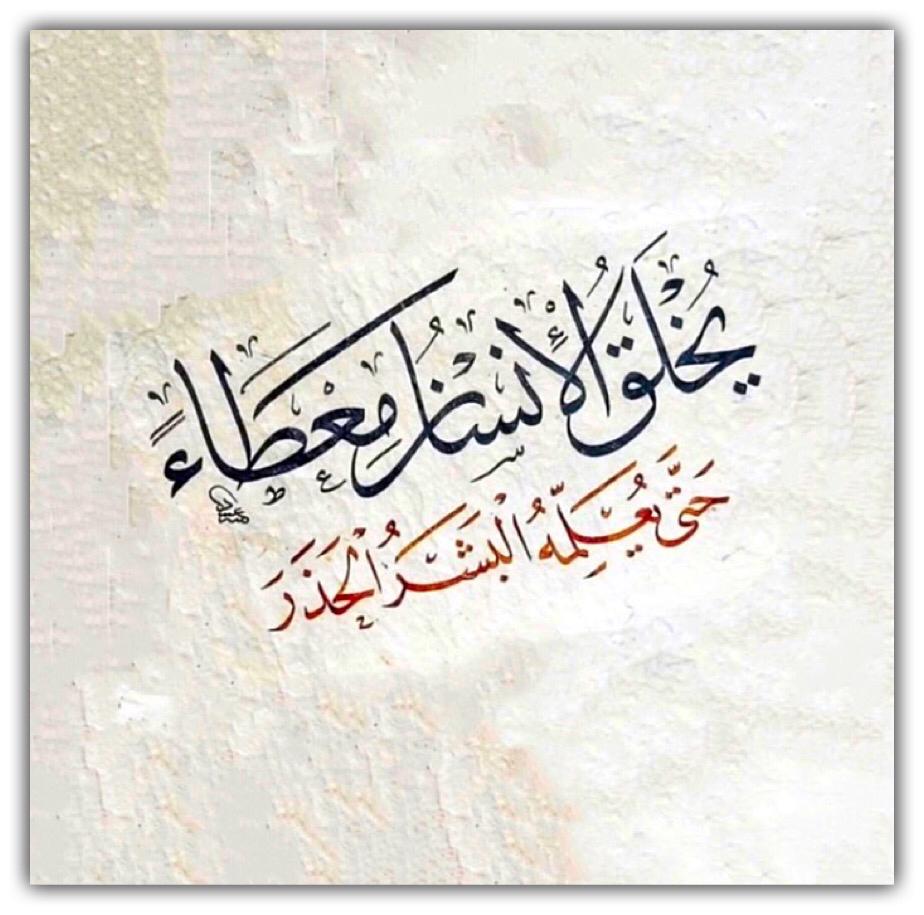 يُخْلَقُ الْإِنْسَانُ مِعْطَاءً
حَتَّى يُعَلِّمَهُ الْبَشَرُ الْحَذَرَ